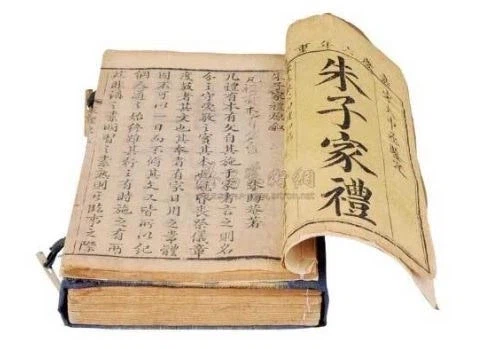 朱子家禮
朱子家禮原敘
朱晦菴著
凡禮有本有文自其施于家者言之則名
分之守愛敬之實其本也冠昏喪祭儀章
度數者其文也其本者有家日用之常體
固不可以一日而不修其文又皆所以紀
綱人道之始終雖其行之有時施之有所
然非講之素明習之素熟則其臨事之際